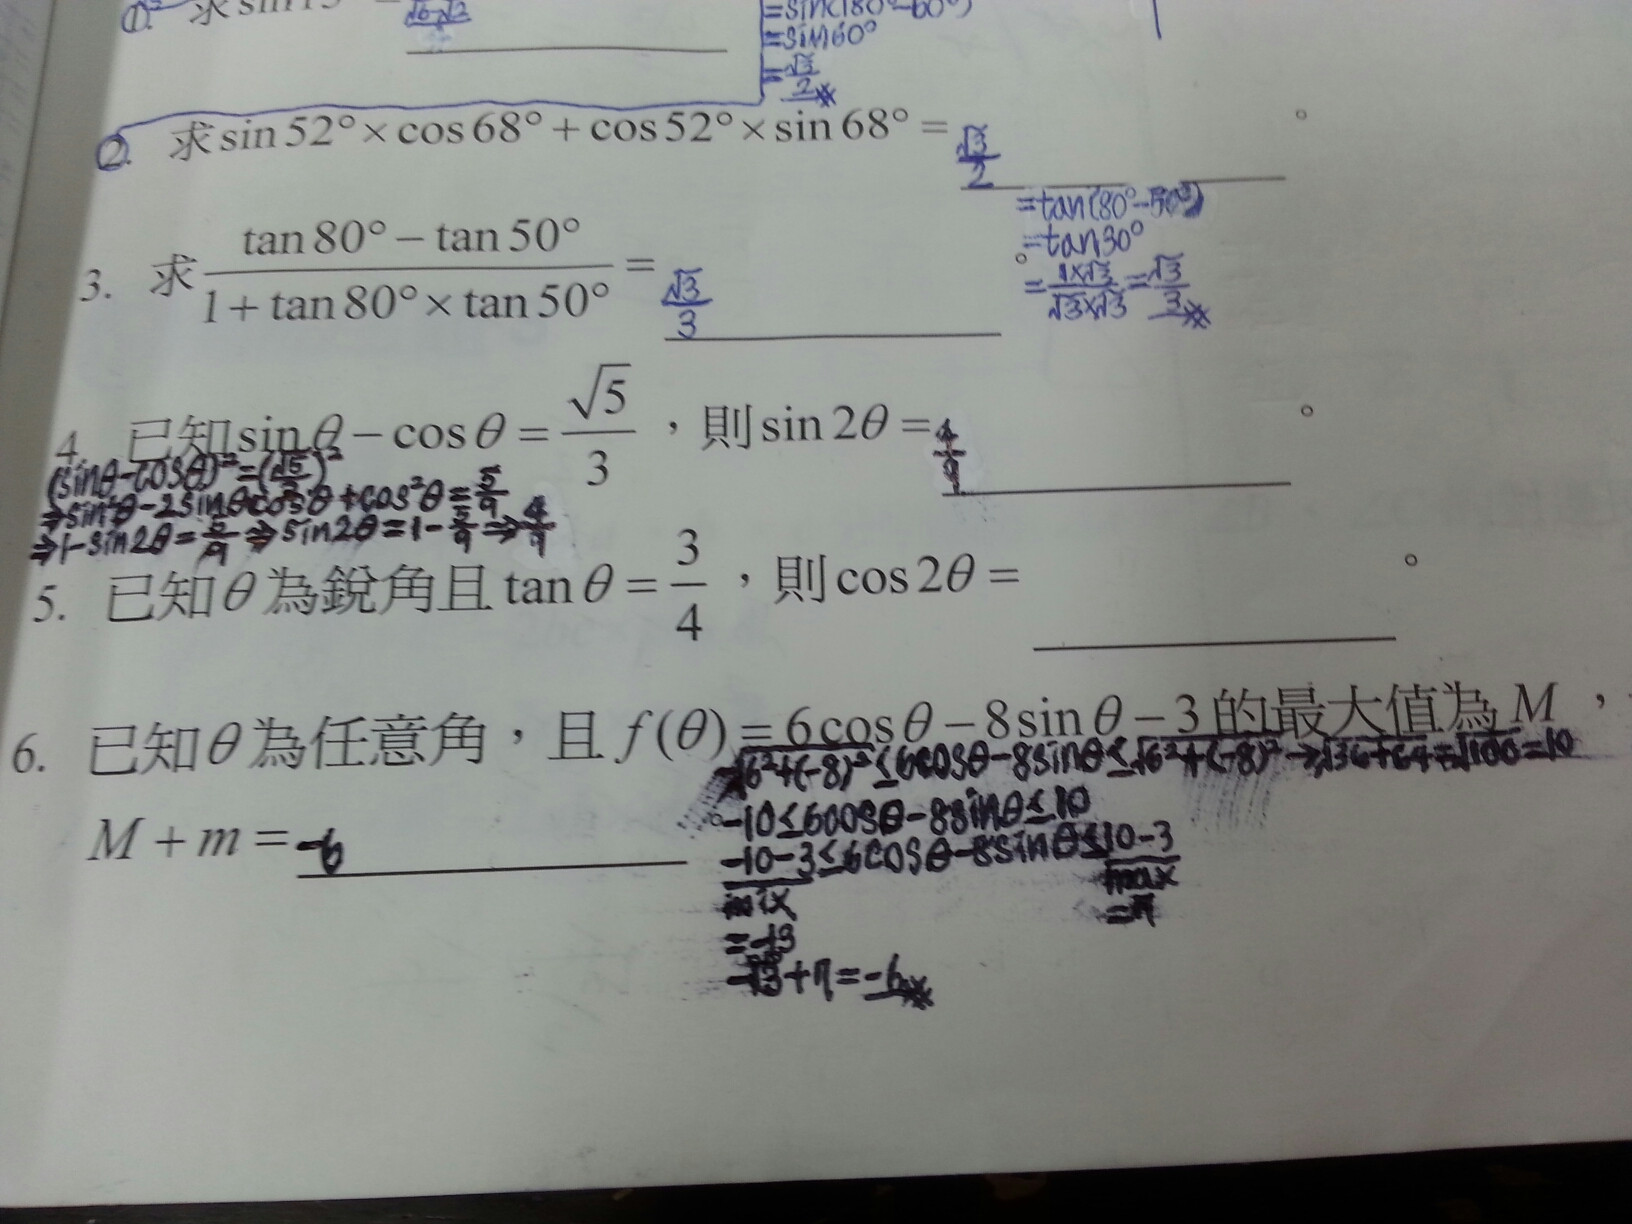 ①. 求sin15° = (√6-√2)/4
=sin(180°-60°)
=sin60°
=√3/2
2. 求sin52°×cos68°+cos52°×sin68°= √3/2 。
3. 求 (tan80°-tan50°)/(1+tan80°×tan50°) = √3/3 。
=tan(80°-50°)
=tan30°
=(1×√3)/(√3×√3)=√3/3
4. 已知sinθ-cosθ=√5/3,則sin2θ= 4/9 。
(sinθ-cosθ)²=(√5/3)²
⇒sin²θ-2sinθcosθ+cos²θ=5/9
⇒1-sin2θ=5/9⇒sin2θ=1-5/9⇒4/9
5. 已知θ為銳角且tanθ=3/4,則cos2θ= 。
6. 已知θ為任意角,且f(θ)=6cosθ-8sinθ-3的最大值為M,
-√6²+(-8)²≤6cosθ-8sinθ≤√6²+(-8)²→√36+64=√100=10
M+m=-6 。
-10≤6cosθ-8sinθ≤10
-10-3≤6cosθ-8sinθ≤10-3
mix
max
=-13
=7
-13+7=-6